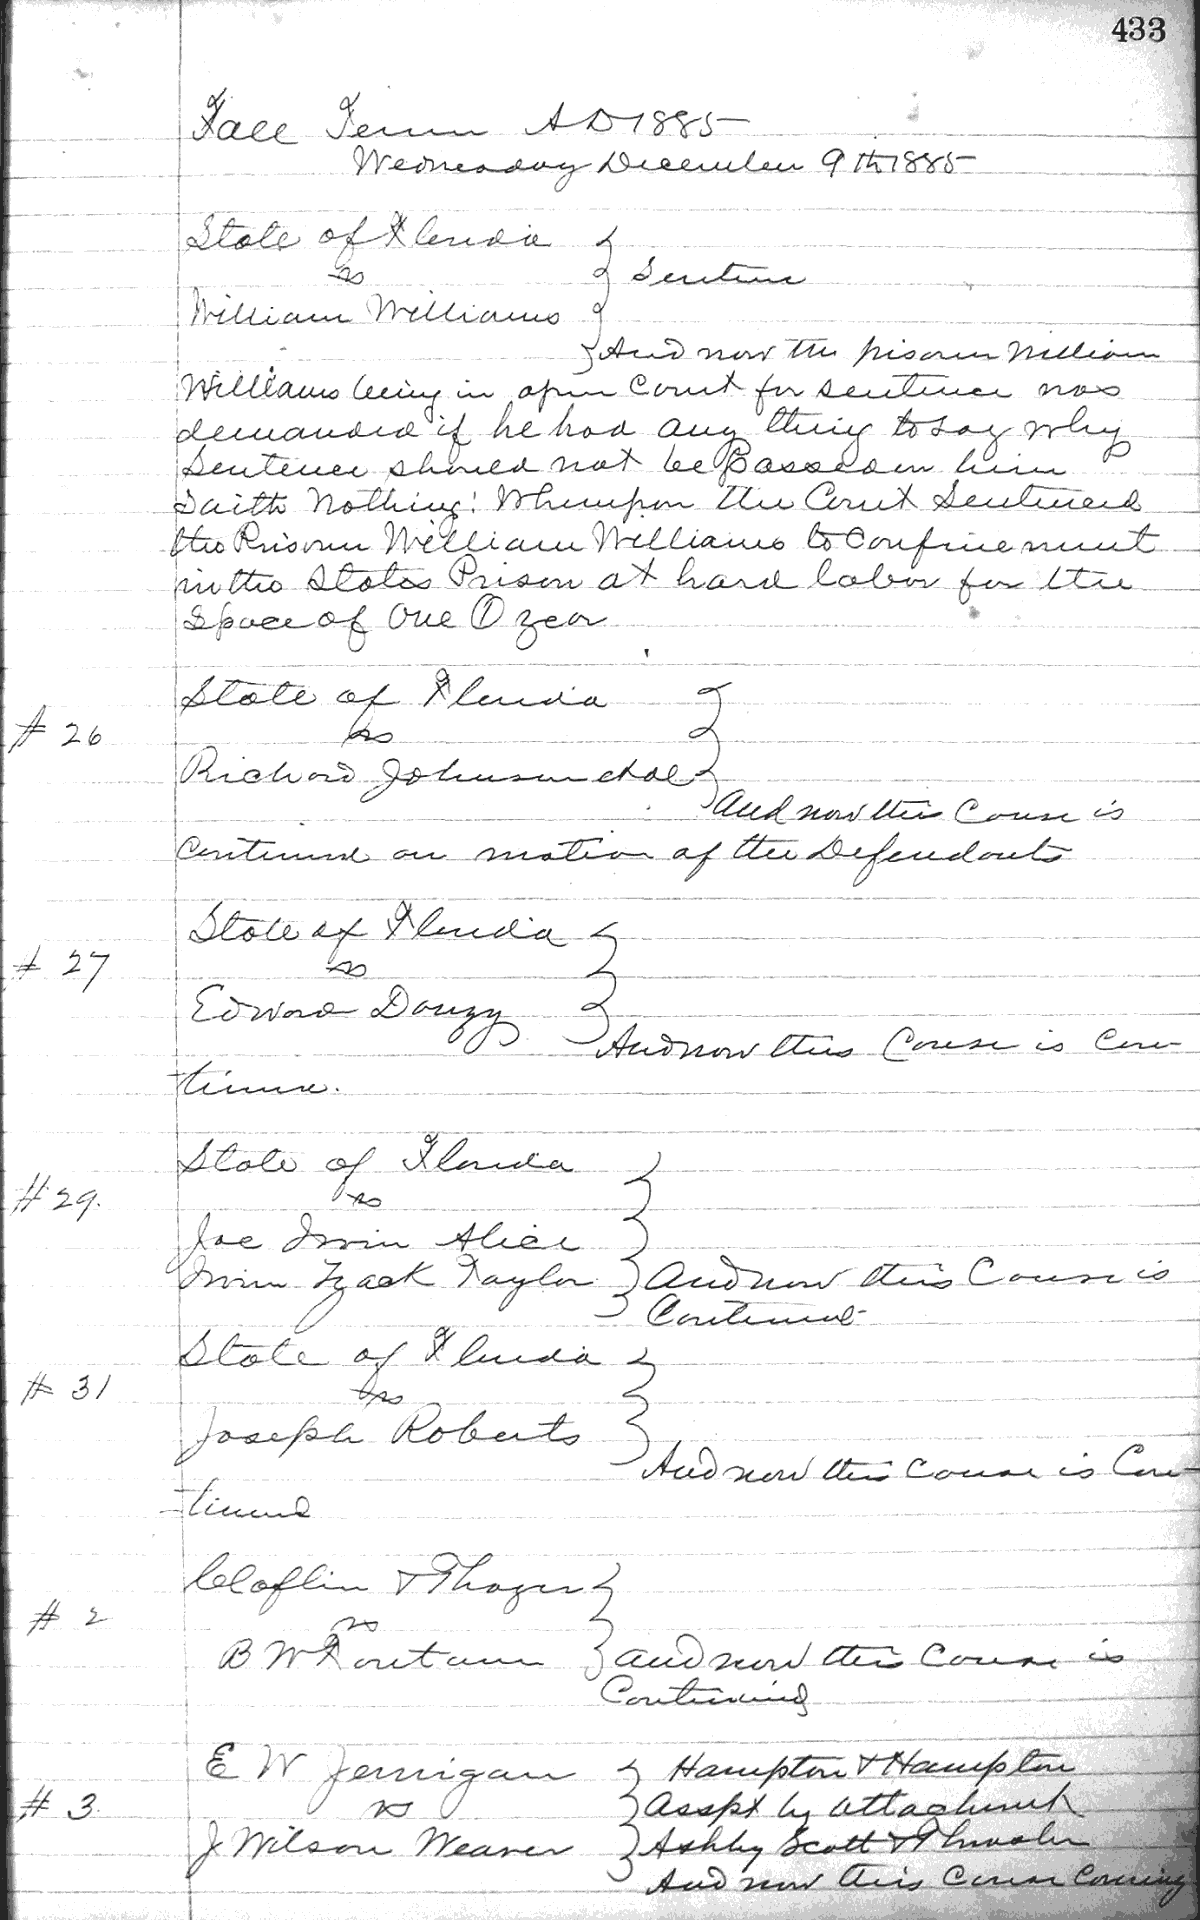 433
Fall Term AD 1885
Wednesday December 9th 1885
State of Florida
vs
Sentence
William Williams
And now the prisoner William
Williams being in open Court for sentence was
demanded if he had any thing to say why
Sentence should not be Passed on him
Saith Nothing: Whereupon the Court Sentenced
the Prisoner William Williams to Confinement
in the States Prison at hard labor for the
Space of One (1) year
State of Florida
# 26
vs
Richard Johnson et al
And now this Cause is
Continued on motion of the Defendants
State of Florida
# 27
vs
Edward
And now this Cause is Con-
tinued.
State of Florida
# 29.
vs
Joe Irvin Alice
Irvin Zack Taylor And now this Cause is
Continued
State of Florida
# 31
vs
Joseph Roberts
And now this Cause is Con-
tinued
Claflin & Thayer
# 2
vs
B W Fontain And now this Cause is
Continued
E W Jernigan Hampton & Hampton
# 3.
vs
Asspt by attachment
J Wilson Weaver Ashby Scott & Thrasher
And now this Cause Coming